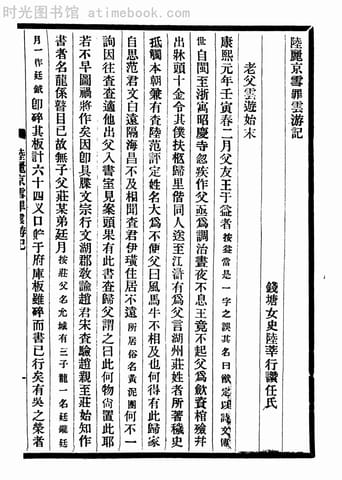 时光图书馆 - atimebook.com
陸麗京雪罪雲游記
老父雲遊始末
錢塘女史陸莘行讚任氏
康熙元年壬寅春二月父友王于益者按益當是一字之誤其名曰猷定以詩文名
世自閩至浙寓昭慶寺忽疾作父亟為調治晝夜不息王竟不起父為飲資棺殮并
出牀頭十金令其僕扶柩歸里偕同人送至江滸有為父言湖州莊姓者所著穢史
抵觸本朝兼有查陸范評定姓名大為不便父曰風馬牛不相及也何得有此歸家
自思范君文白遠隔海昌不及相聞查君伊璜住居不遠所居俗名黃泥團何不一
詢因往查查適他出父入書室見案頭果有此書查歸父謂之曰此何物尚置此耶
若不早圖禍將作矣因卽具牒文宗行文湖郡教諭趙君宋查驗趙親至莊始知作
書者名龍係瞽目已故無子父莊某弟廷月按莊父名允城有三子龍一名廷鑨廷
月一作廷鉞卽碎其板計六十四乂口貯于府庫板雖碎而書已行矣有吳之榮者
陸麗京雪罪雲游記
一
时光图书馆 - atimebook.com